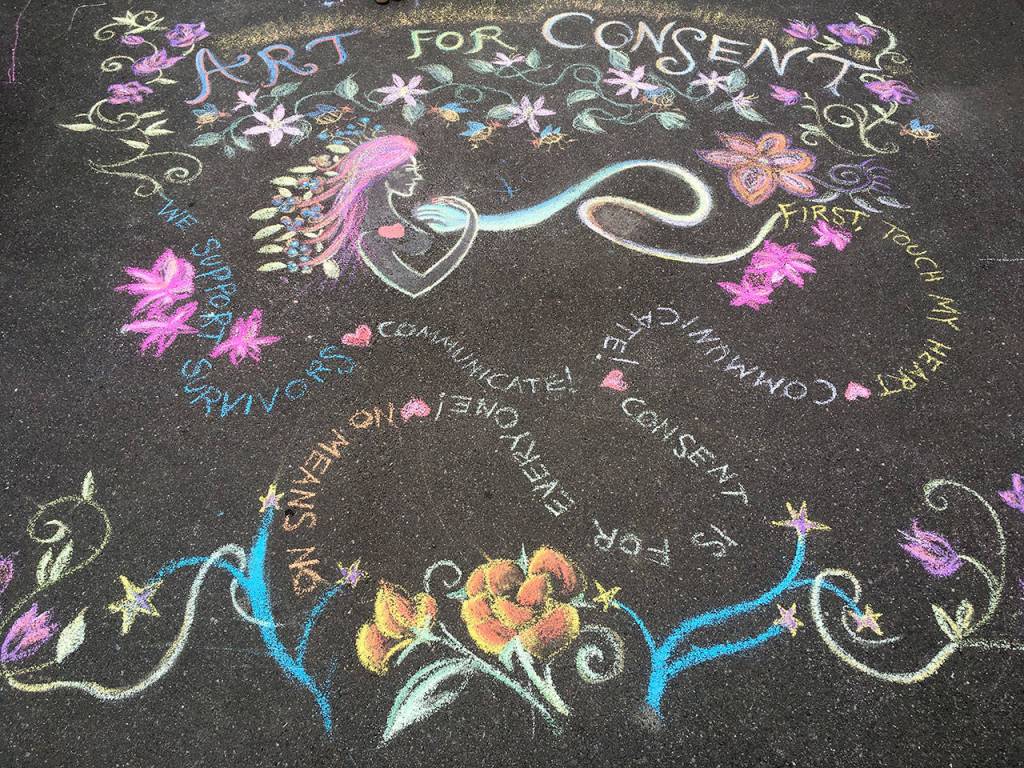 ART FOR CONSENT
FIRST, TOUCH MY HEART
COMMUNICATE!
CONSENT IS FOR EVERYONE!
NO MEANS NO
WE SUPPORT SURVIVORS
COMMUNICATE!